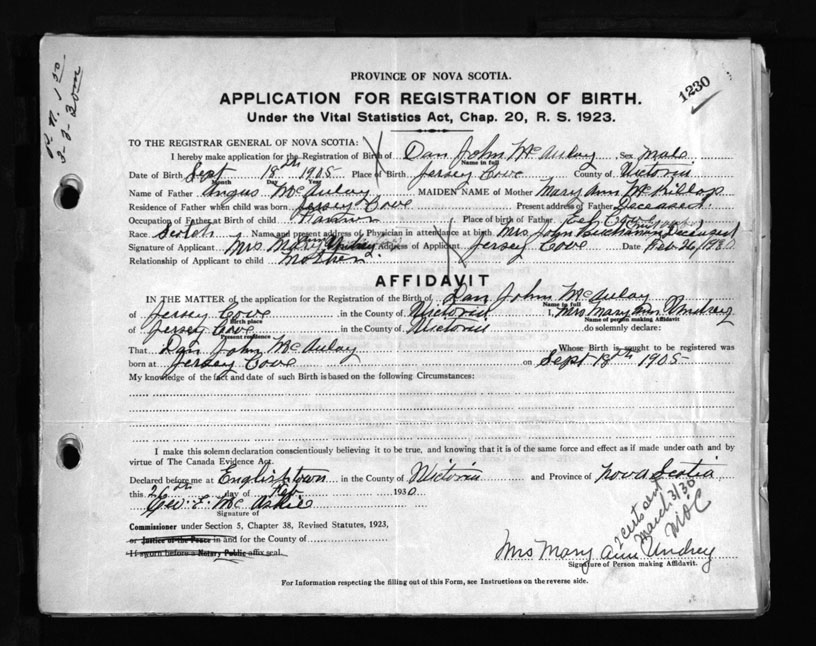 PROVINCE OF NOVA SCOTIA.
1230
APPLICATION FOR REGISTRATION OF BIRTH.
Under the Vital Statistics Act, Chap. 20, R. S. 1923.
TO THE REGISTRAR GENERAL OF NOVA SCOTIA:
I hereby make application for the Registration of Birth of Dan John McAulay Sex Male
Name in full
Date of Birth Sept 18th 1905 Place of Birth Jersey Cove County of Victoria
Month Day Year
Name of Father Angus McAulay MAIDEN NAME of Mother Mary Ann McKillop
Residence of Father when child was born Jersey Cove Present address of Father Deceased
Occupation of Father at Birth of child Farmer Place of birth of Father Cove
Race Scotch Name and present address of Physician in attendance at birth Mrs John Buchanan Deceased
Signature of Applicant Mrs Mary Address of Applicant Jersey Cove Date Feb 26/1930
Relationship of Applicant to child Mother
AFFIDAVIT
IN THE MATTER of the application for the Registration of the Birth of Dan John McAulay
Name in full
of Jersey Cove in the County of Victoria I, Mrs Mary Ann
Birth place Name of person making Affidavit
of Jersey Cove in the County of Victoria do solemnly declare:
Present residence
That Dan John McAulay Whose Birth is sought to be registered was
born at Jersey Cove on Sept 18th 1905
My knowledge of the fact and date of such Birth is based on the following Circumstances:
I make this solemn declaration conscientiously believing it to be true, and knowing that it is of the same force and effect as if made under oath and by
virtue of The Canada Evidence Act.
Declared before me at Englishtown in the County of Victoria and Province of Nova Scotia
this 26th day of Feb 1930
Geo. E. McAskill
Signature of
Commissioner under Section 5, Chapter 38, Revised Statutes, 1923,
or Justice of the Peace in and for the County of
If sworn before a Notary Public affix seal
March 3/30
Mrs Mary Ann
Signature of Person making Affidavit.
For Information respecting the filling out of this Form, see Instructions on the reverse side.